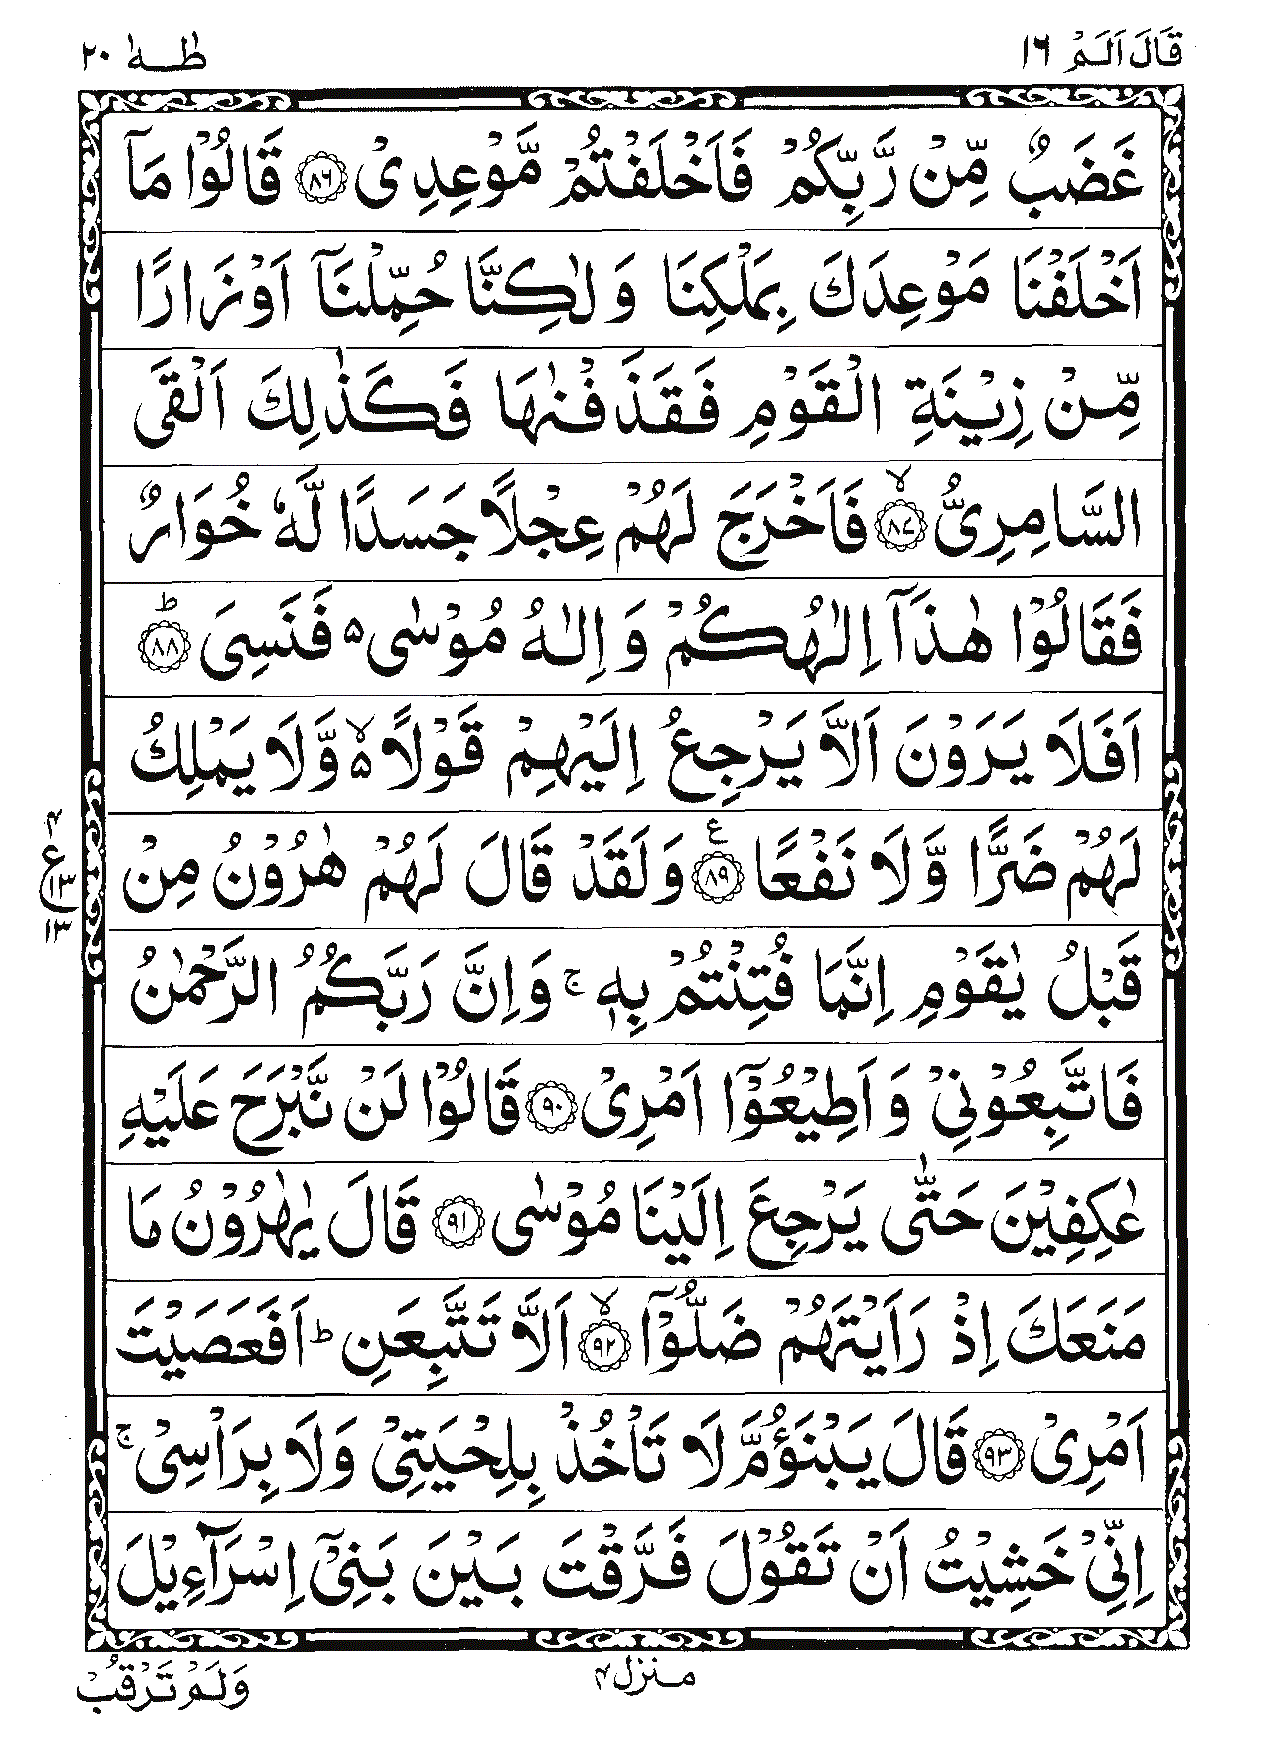 قَالَ اَلَمْ ١٦ طٰـهٰ ٢٠
غَضَبٌ مِّنْ رَّبِّكُمْ فَاَخْلَفْتُمْ مَّوْعِدِىْ ﴿٨٦﴾ قَالُوْا مَآ
اَخْلَفْنَا مَوْعِدَكَ بِمَلْكِنَا وَ لٰكِنَّا حُمِّلْنَآ اَوْزَارًا
مِّنْ زِيْنَةِ الْقَوْمِ فَقَذَفْنٰهَا فَكَذٰلِكَ اَلْقَى
السَّامِرِىُّ ﴿٨٧﴾ ۙ فَاَخْرَجَ لَهُمْ عِجْلًا جَسَدًا لَّهٗ خُوَارٌ
فَقَالُوْا هٰذَآ اِلٰهُكُمْ وَ اِلٰهُ مُوْسٰى ۥ فَنَسِىَ ﴿٨٨﴾ ؕ
اَفَلَا يَرَوْنَ اَلَّا يَرْجِعُ اِلَيْهِمْ قَوْلًا ۥ ۙ وَّلَا يَمْلِكُ
لَهُمْ ضَرًّا وَّ لَا نَفْعًا ﴿٨٩﴾ ع وَلَقَدْ قَالَ لَهُمْ هٰرُوْنُ مِنْ
٤ ع ١٣ ١٣
قَبْلُ يٰقَوْمِ اِنَّمَا فُتِنْتُمْ بِهٖ ۚ وَاِنَّ رَبَّكُمُ الرَّحْمٰنُ
فَاتَّبِعُوْنِىْ وَ اَطِيْعُوْٓا اَمْرِىْ ﴿٩٠﴾ قَالُوْا لَنْ نَّبْرَحَ عَلَيْهِ
عٰكِفِيْنَ حَتّٰى يَرْجِعَ اِلَيْنَا مُوْسٰى ﴿٩١﴾ قَالَ يٰهٰرُوْنُ مَا
مَنَعَكَ اِذْ رَاَيْتَهُمْ ضَلُّوْٓا ﴿٩٢﴾ ۙ اَلَّا تَتَّبِعَنِ ؕ اَفَعَصَيْتَ
اَمْرِىْ ﴿٩٣﴾ قَالَ يَبْنَؤُمَّ لَا تَاْخُذْ بِلِحْيَتِىْ وَلَا بِرَاْسِىْ ۚ
اِنِّىْ خَشِيْتُ اَنْ تَقُوْلَ فَرَّقْتَ بَيْنَ بَنِىْٓ اِسْرَآءِيْلَ
منزل ٤
وَلَمْ تَرْقُبْ